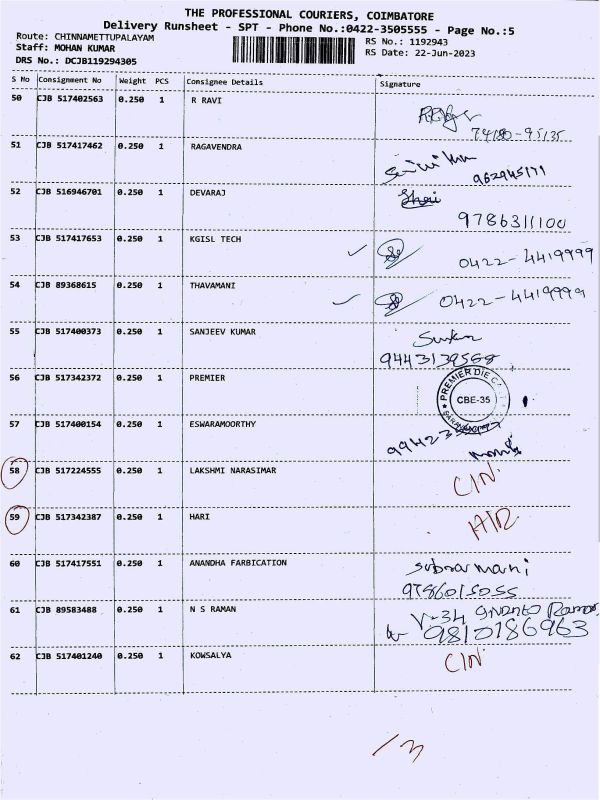 THE PROFESSIONAL COURIERS, COIMBATORE
Delivery Runsheet - SPT - Phone No.:0422-3505555 - Page No.:5
Route: CHINNAMETTUPALAYAM
RS No.: 1192943
Staff: MOHAN KUMAR
RS Date: 22-Jun-2023
DRS No.: DCJB119294305
S No Consignment No Weight PCS Consignee Details Signature
50 CJB 517402563 0.250 1 R RAVI
51 CJB 517417462 0.250 1 RAGAVENDRA
52 CJB 516946701 0.250 1 DEVARAJ
9786311100
53 CJB 517417653 0.250 1 KGISL TECH 0422-4419999
54 CJB 89368615 0.250 1 THAVAMANI 0422-4419999
55 CJB 517400373 0.250 1 SANJEEV KUMAR
56 CJB 517342372 0.250 1 PREMIER
PREMIER DIE
CBE-35
57 CJB 517400154 0.250 1 ESWARAMOORTHY
58 CJB 517224555 0.250 1 LAKSHMI NARASIMAR CIN
59 CJB 517342387 0.250 1 HARI
60 CJB 517417551 0.250 1 ANANDHA FARBICATION
9786015055
61 CJB 89583488 0.250 1 N S RAMAN
9810186963
62 CJB 517401240 0.250 1 KOWSALYA CIN
/3